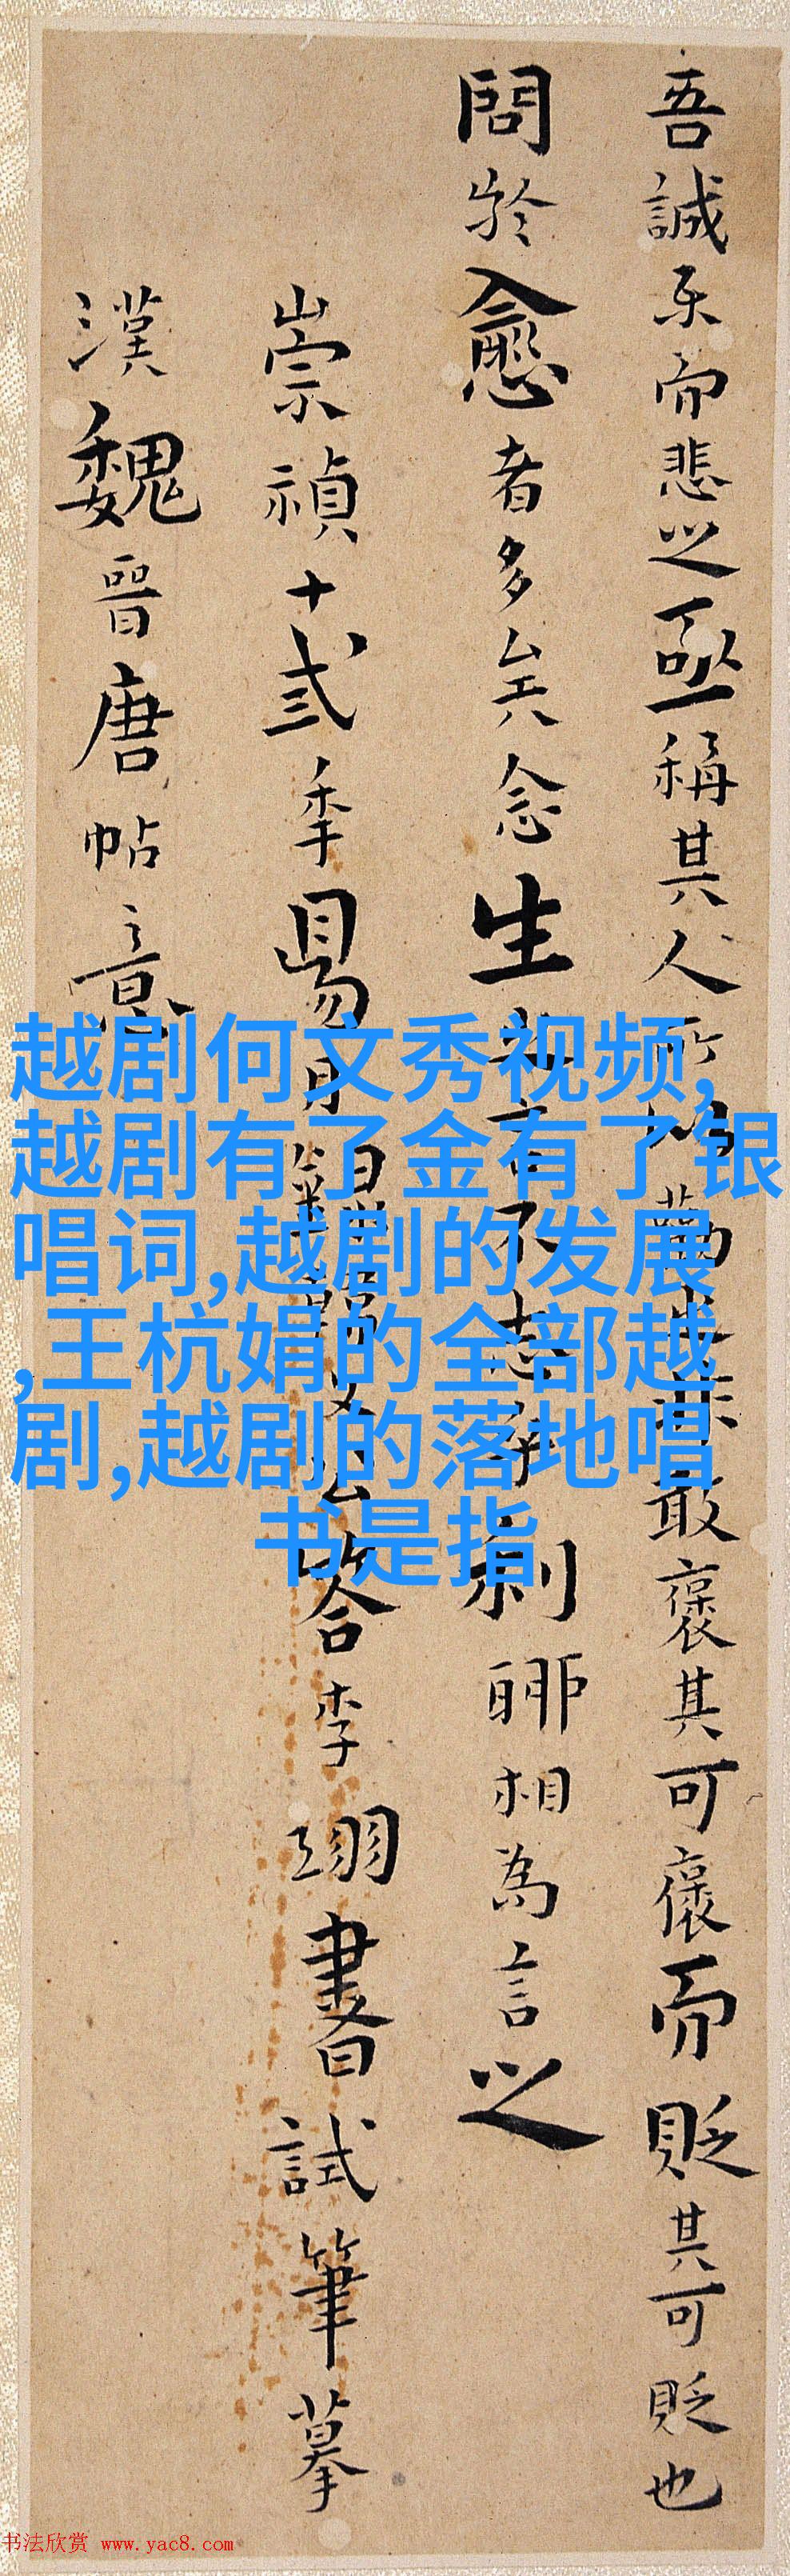 吾誠樂而悲之亟稱其人所以勸之非敢褒其可褒而貶其可貶也
問於愈者多矣念生之言不志乎利聊相為言之
崇禎十弎季昜月韓文公答李翊書試筆摹
漢魏晉唐帖意
越剧何文秀视频,
越剧有了金有了银
唱词,越剧的发展
,王杭娟的全部越
剧,越剧的落地唱
书是指
书法欣赏 www.yac8.com